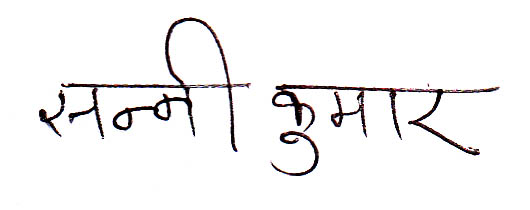 सन्नी कुमार